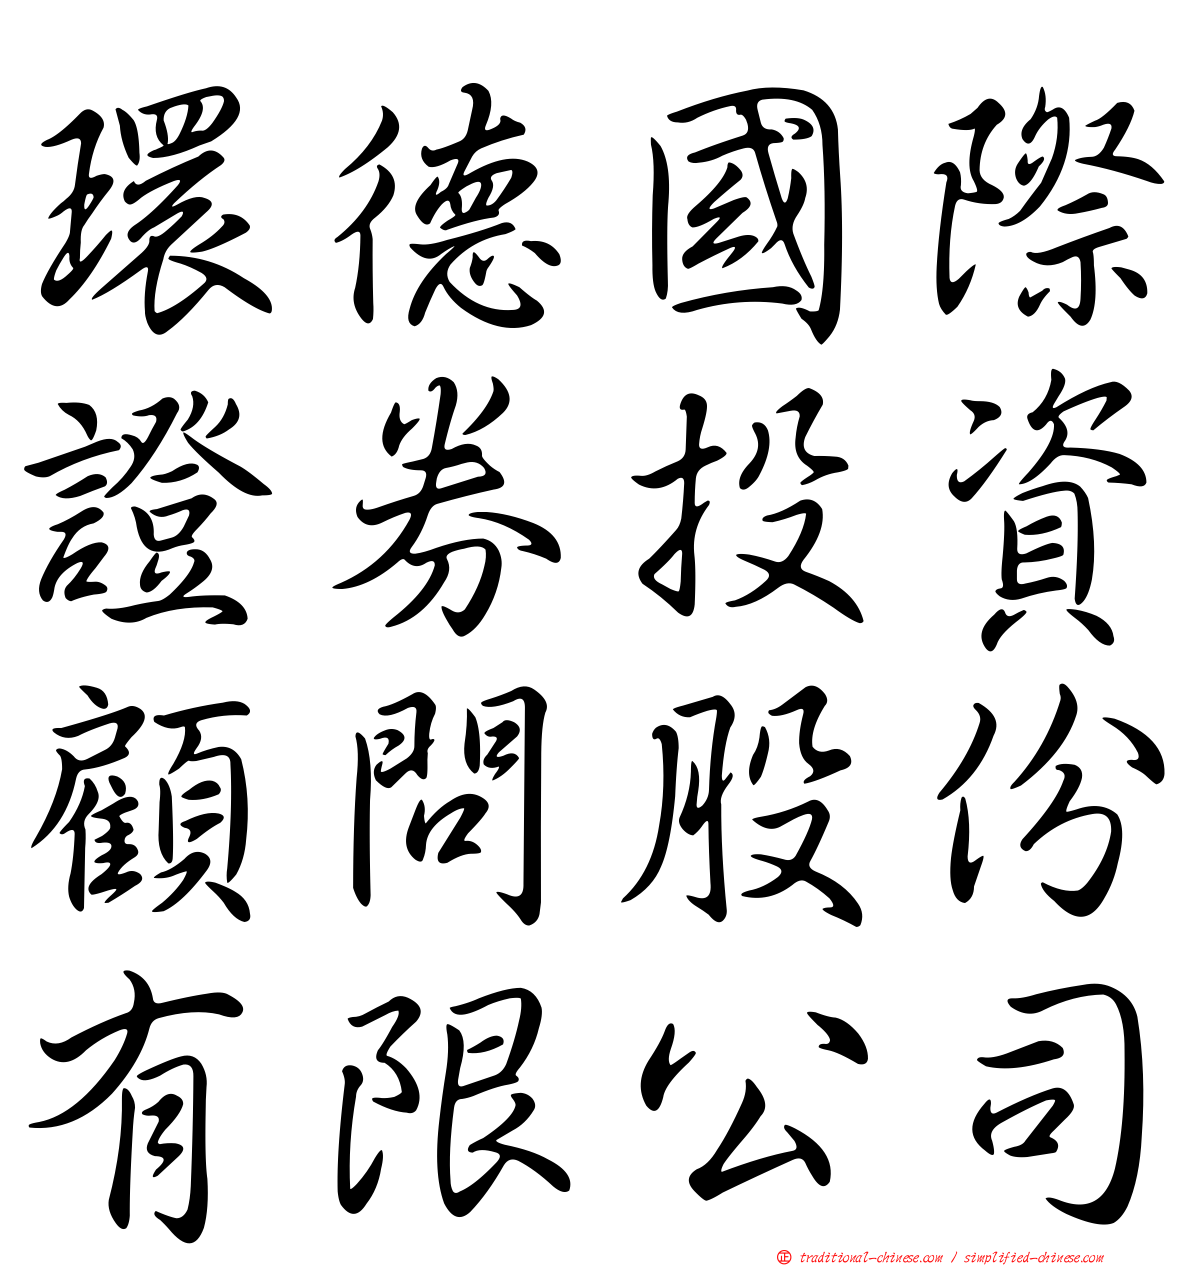 環德國際
證券投資
顧問股份
有限公司
正 traditional-chinese.com / simplified-chinese.com